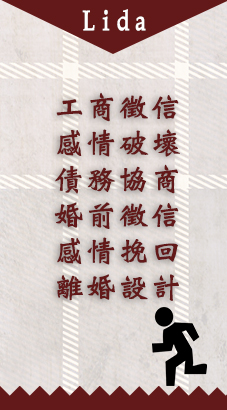 Lida
工商徵信
感情破壞
債務協商
婚前徵信
感情挽回
離婚設計